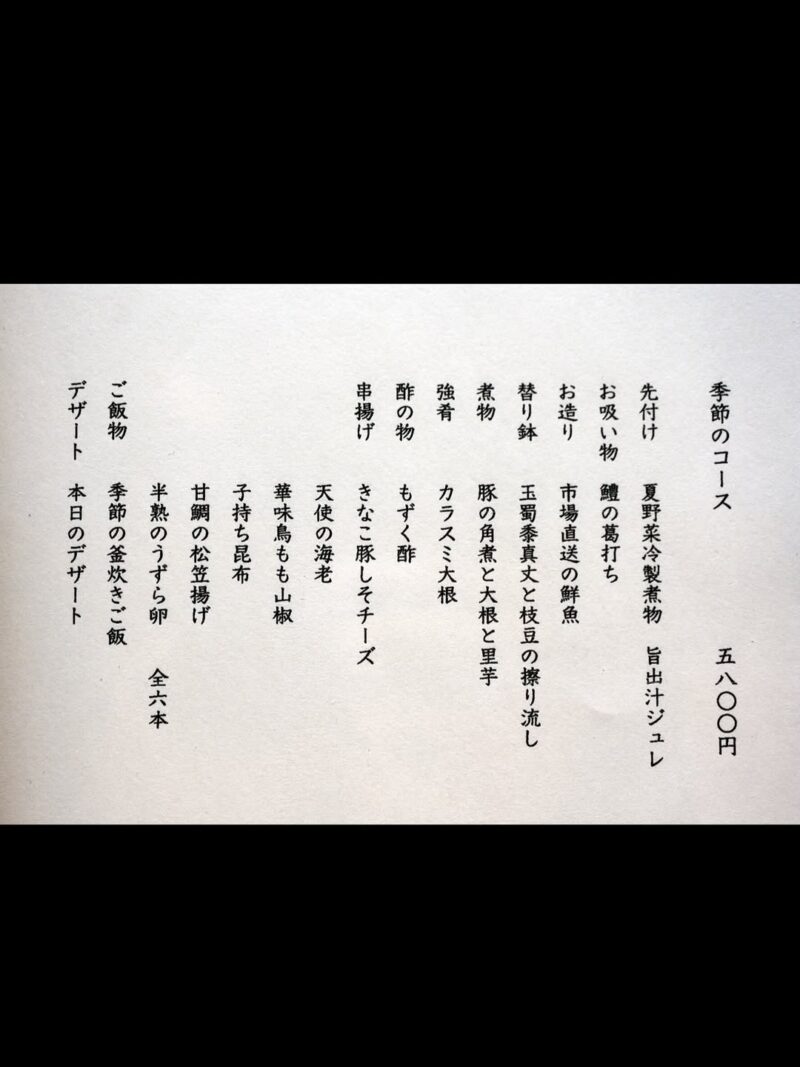 季節のコース 五八〇〇円
先付け 夏野菜冷製煮物 旨出汁ジュレ
お吸い物 鱧の葛打ち
お造り 市場直送の鮮魚
替り鉢 玉蜀黍真丈と枝豆の擦り流し
煮物 豚の角煮と大根と里芋
強肴 カラスミ大根
酢の物 もずく酢
串揚げ きなこ豚しそチーズ
天使の海老
華味鳥もも山椒
子持ち昆布
甘鯛の松笠揚げ
半熟のうずら卵 全六本
ご飯物 季節の釜炊きご飯
デザート 本日のデザート